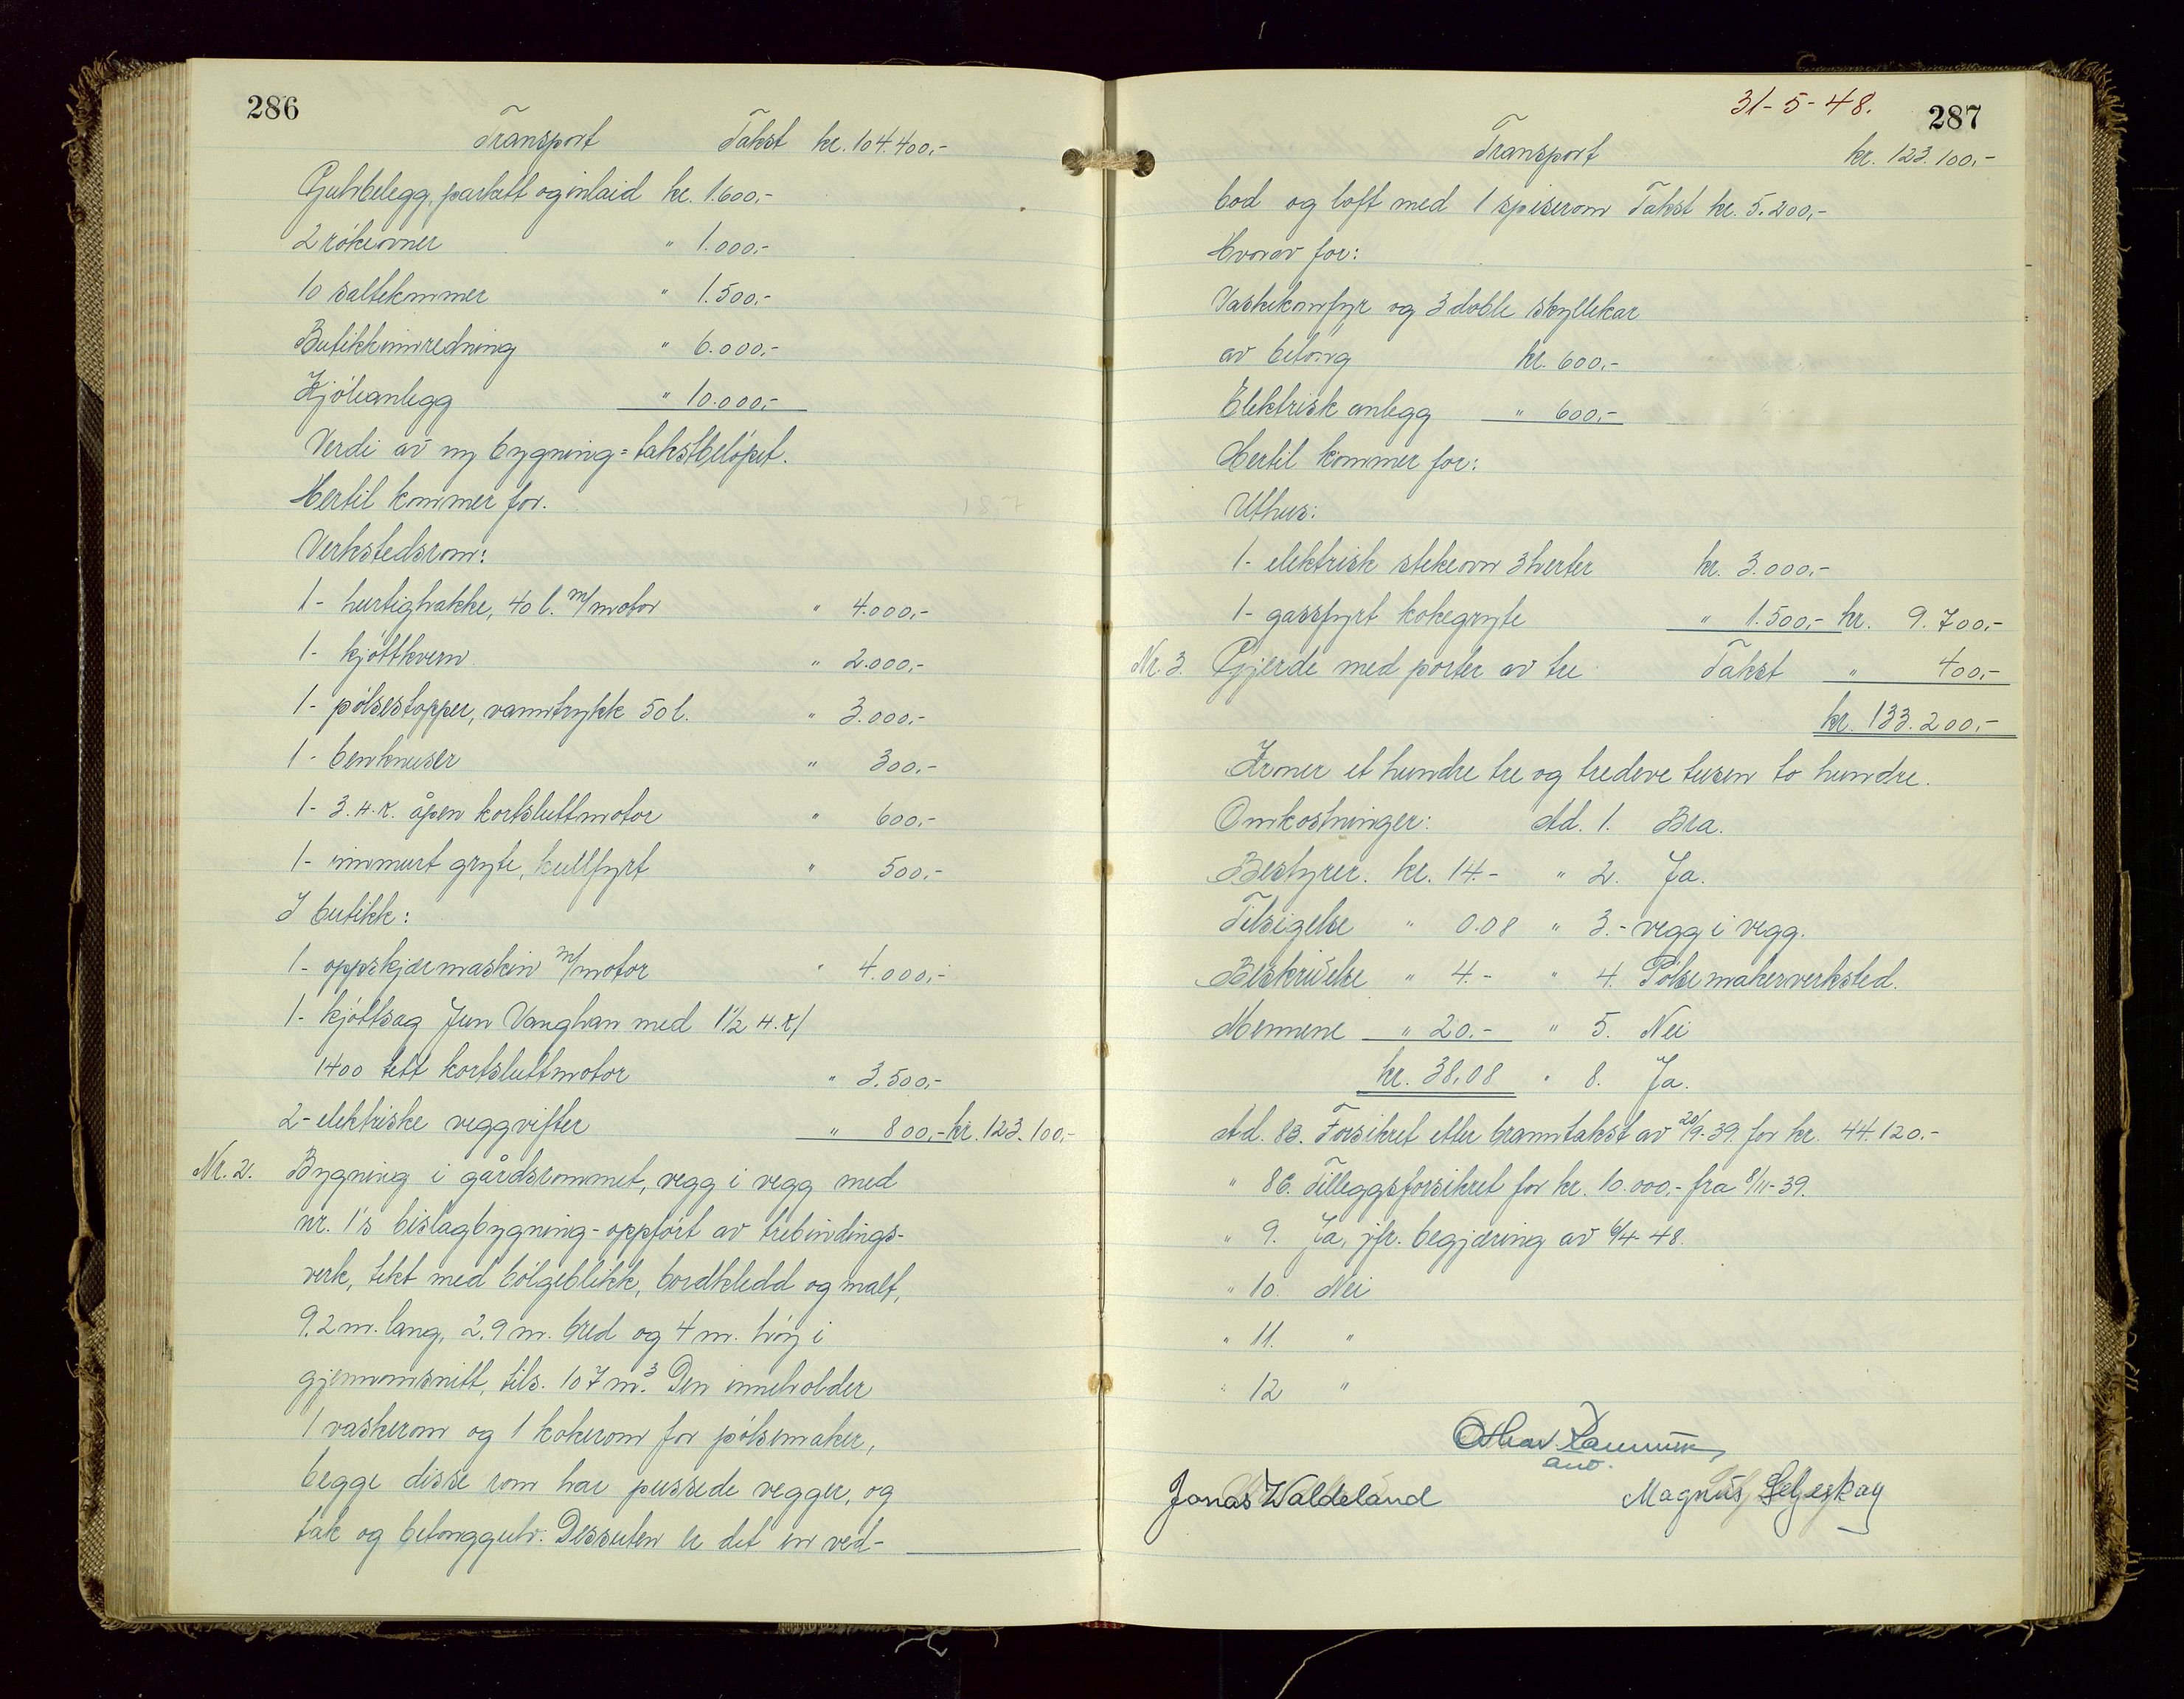 286
Transport Takst kr. 104.400,-
Gulvbelegg, parkett og inlaid kr. 1.600,-
2 rökeovner " 1.000,-
10 saltekummer " 1.500,-
Butikkinnredning " 6.000,-
Kjöleanlegg " 10.000,-
Verdi av ny bygning = takstbelöpet.
Hertil kommer for.
Verkstedsrom:
1- hurtighakke, 40 l. m/motor " 4.000,-
1- kjöttkvern " 2.000,-
1- pölsestopper, vanntrykk 50 l. " 3.000,-
1- benknuser " 300,-
1- 3. H.K. åpen kortsluttmotor " 600,-
1- innmurt gryte, kullfyrt " 500,-
I butikk:
1- oppskjærmaskin m/motor " 4.000,-
1- kjöttsag Jun Vanghan med 1½ H.K/
1400 tett kortsluttmotor " 3.500,-
2- elektriske veggvifter " 800,- kr. 123.100,-
Nr. 2. Bygning i gårdsrommet, vegg i vegg med
nr. 1's bislagbygning - oppfört av trebindings-
verk, tekt med bölgeblikk, bordkledd og malt,
9,2 m. lang, 2,9 m. bred og 4 m. höy i
gjennomsnitt, tils. 107 m³. Den inneholder
1 vaskerom og 1 kokerom for pölsemaker,
begge disse rom har pussede vegger, og
tak og betonggulv. Dessuten er det en ved-
31-5-48. 287
Transport kr. 123.100,-
bod og loft med 1 spiserom Takst kr. 5.200,-
Hvorav for:
Vaskekomfyr og 3 doble skyllekar
av betong kr. 600,-
Elektrisk anlegg " 600,-
Hertil kommer for:
Uthus:
1- elektrisk stekeovn 3 herter kr. 3.000,-
1- gassfyrt kokegryte " 1.500,- kr. 9.700,-
Nr. 3. Gjerde med porter av tre Takst " 400,-
kr. 133.200,-
Kroner et hundre tre og tredeve tusen to hundre.
Omkostninger: Ad. 1. Bra.
Bestyrer. kr. 14.- " 2. Ja.
Tilsigelse " 0.08 " 3.- vegg i vegg.
Beskrivelse " 4.- " 4. Pölsemakerverksted.
Mennene " 20.- " 5. Nei
kr. 38,08 " 8. Ja.
Ad. 8B. Forsikret etter branntakst av 20/9-39. for kr. 44.120.-
" 8C. Tilleggsforsikret for kr. 10.000,- fra 8/11-39.
" 9. Ja, jfr. begjæring av 6/4-48.
" 10. Nei
" 11. "
" 12 "
Jonas Waldeland Magnus Seljeskog